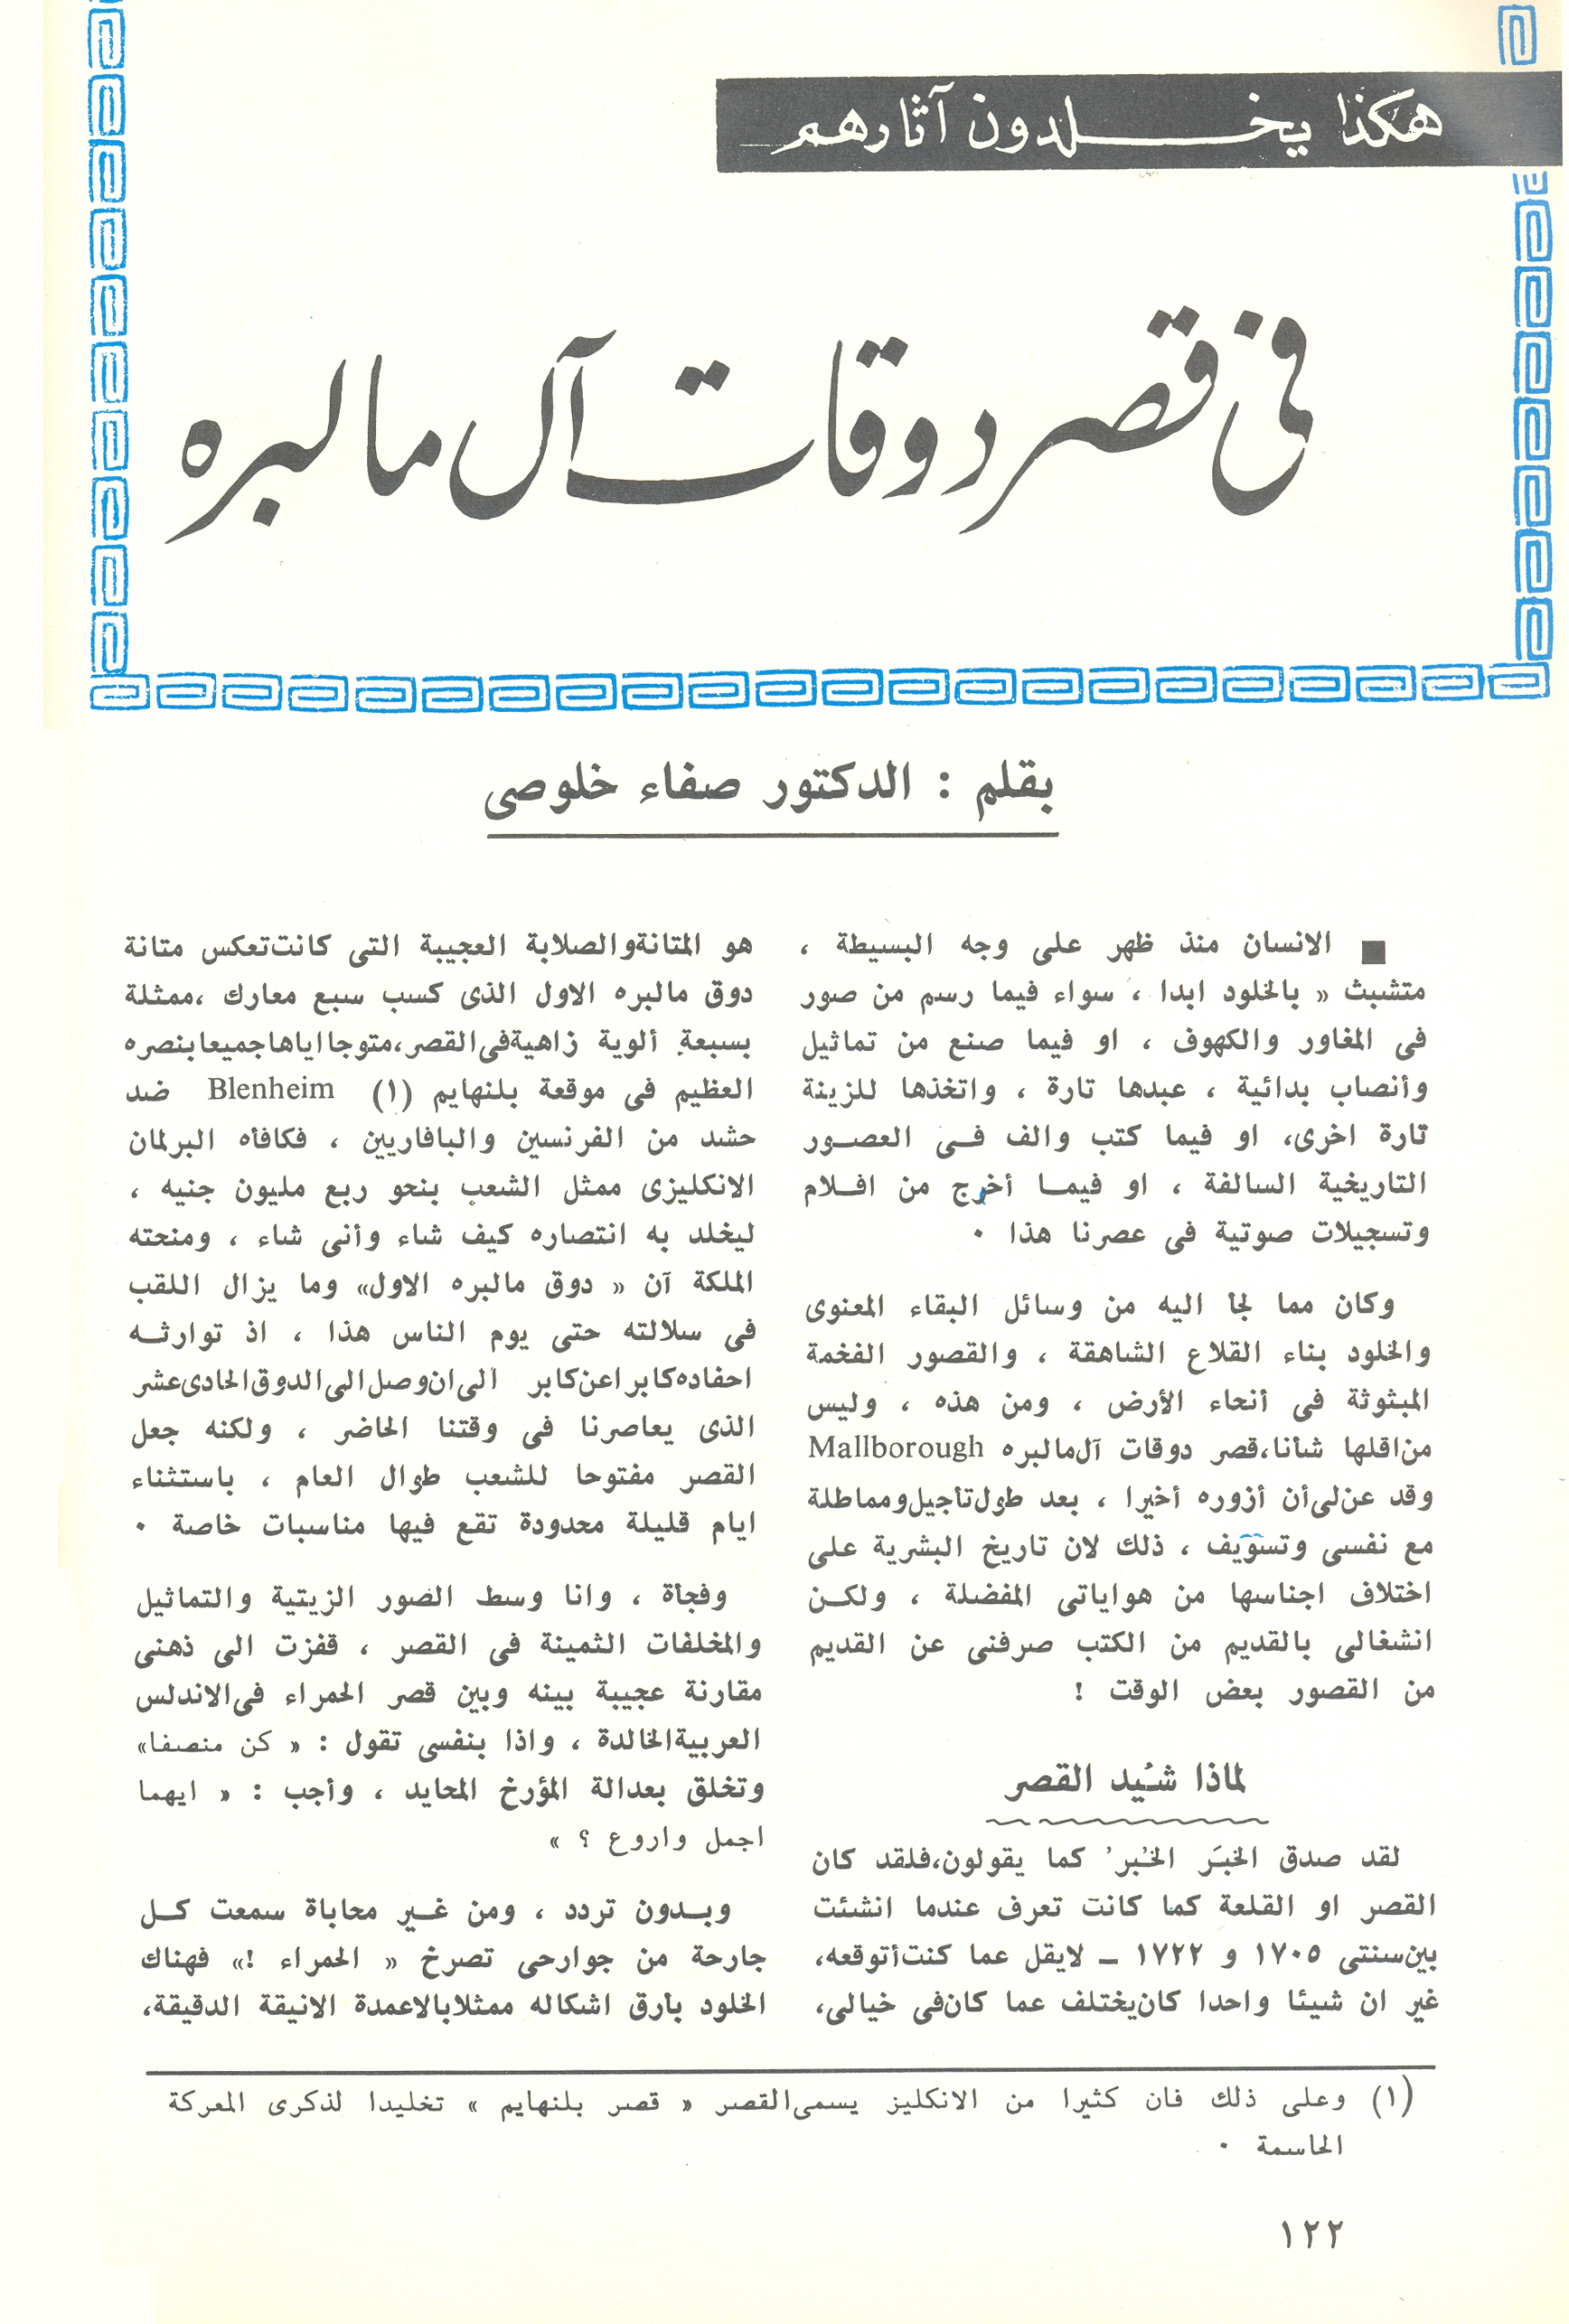 هكذا يخلدون آثارهم
فى قصر دوقات آل مالبره
بقلم : الدكتور صفاء خلوصى
■ الانسان منذ ظهر على وجه البسيطة ،
متشبث « بالخلود ابدا ، سواء فيما رسم من صور
فى المغاور والكهوف ، او فيما صنع من تماثيل
وأنصاب بدائية ، عبدها تارة ، واتخذها للزينة
تارة اخرى، او فيما كتب والف فى العصور
التاريخية السالفة ، او فيما أخرج من افلام
وتسجيلات صوتية فى عصرنا هذا ٠
وكان مما لجأ اليه من وسائل البقاء المعنوى
والخلود بناء القلاع الشاهقة ، والقصور الفخمة
المبثوثة فى أنحاء الأرض ، ومن هذه ، وليس
من اقلها شأنا، قصر دوقات آل مالبره Mallborough
وقد عن لى أن أزوره أخيرا ، بعد طول تأجيل ومماطلة
مع نفسى وتسويف ، ذلك لان تاريخ البشرية على
اختلاف اجناسها من هواياتى المفضلة ، ولكن
انشغالى بالقديم من الكتب صرفنى عن القديم
من القصور بعض الوقت !
لماذا شُيد القصر
لقد صدق الخبَر الخُبر' كما يقولون، فلقد كان
القصر او القلعة كما كانت تعرف عندما انشئت
بين سنتى ١٧٠٥ و ١٧٢٢ ـ لايقل عما كنت أتوقعه،
غير ان شيئا واحدا كان يختلف عما كان فى خيالى،
هو المتانة والصلابة العجيبة التى كانت تعكس متانة
دوق مالبره الاول الذى كسب سبع معارك ،ممثلة
بسبعة ألوية زاهية فى القصر، متوجا اياها جميعا بنصره
العظيم فى موقعة بلنهايم (١) Blenheim ضد
حشد من الفرنسيين والبافاريين ، فكافأه البرلمان
الانكليزى ممثل الشعب بنحو ربع مليون جنيه ،
ليخلد به انتصاره كيف شاء وأنى شاء ، ومنحته
الملكة آن « دوق مالبره الاول» وما يزال اللقب
فى سلالته حتى يوم الناس هذا ، اذ توارثه
احفاده كابرا عن كابر الى ان وصل الى الدوق الحادى عشر
الذى يعاصرنا فى وقتنا الحاضر ، ولكنه جعل
القصر مفتوحا للشعب طوال العام ، باستثناء
ايام قليلة محدودة تقع فيها مناسبات خاصة ٠
وفجأة ، وانا وسط الصور الزيتية والتماثيل
والمخلفات الثمينة فى القصر ، قفزت الى ذهنى
مقارنة عجيبة بينه وبين قصر الحمراء فى الاندلس
العربية الخالدة ، واذا بنفسى تقول : « كن منصفا»
وتخلق بعدالة المؤرخ المحايد ، وأجب : « ايهما
اجمل واروع ؟ »
وبدون تردد ، ومن غير محاباة سمعت كل
جارحة من جوارحى تصرخ « الحمراء !» فهناك
الخلود بأرق اشكاله ممثلا بالاعمدة الانيقة الدقيقة،
(١) وعلى ذلك فان كثيرا من الانكليز يسمى القصر « قصر بلنهايم » تخليدا لذكرى المعركة
الحاسمة ٠
١٢٢